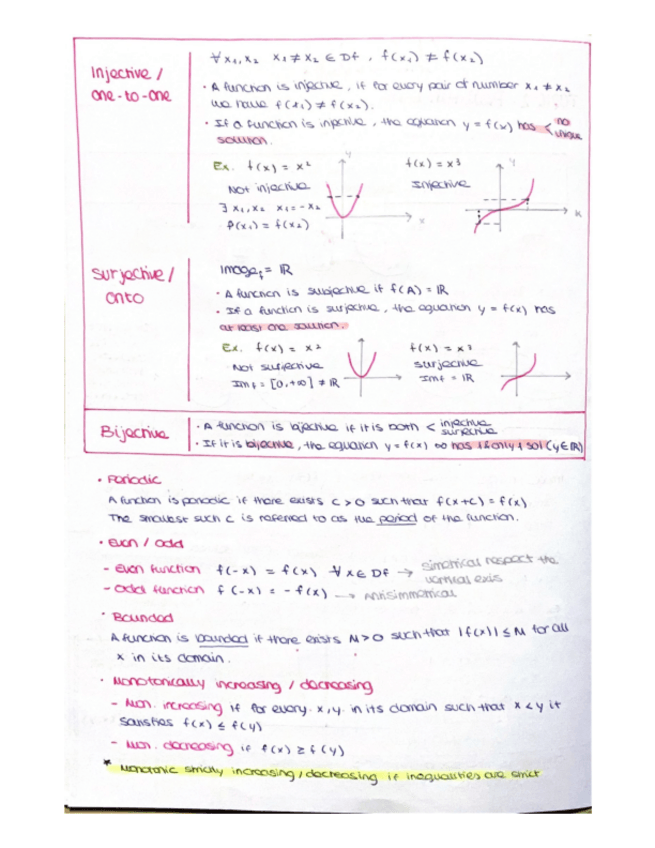 ∀ x₁, x₂ x₁ ≠ x₂ ∈ Df , f(x₁) ≠ f(x₂)
Injective /
one-to-one
· A function is injective, if for every pair of number x₁ ≠ x₂
we have f(x₁) ≠ f(x₂).
· If a function is injective, the equation y = f(x) has < no
unique
solution.
Ex. f(x) = x²
Not injective
∃ x₁, x₂ x₁ = - x₂
f(x₁) = f(x₂)
y
x
f(x) = x³
Injective
y
x
Surjective /
onto
Image f = ℝ
· A function is surjective if f(A) = ℝ
· If a function is surjective, the equation y = f(x) has
at least one solution.
Ex. f(x) = x²
Not surjective
Im f = [0, +∞] ≠ ℝ
f(x) = x³
surjective
Im f = ℝ
Bijective
· A function is bijective if it is both < injective
surjective
· If it is bijective, the equation y = f(x) has 1 & only 1 sol (y∈ℝ)
· Periodic
A function is periodic if there exists c > 0 such that f(x+c) = f(x)
The smallest such c is referred to as the period of the function.
· Even / odd
- Even function f(-x) = f(x) ∀ x ∈ Df → simetrical respect the
vertical exis
- Odd function f(-x) = - f(x) → Antisimmetrical
· Bounded
A function is bounded if there exists M > 0 such that |f(x)| ≤ M for all
x in its domain.
· Monotonically increasing / decreasing
- Mon. increasing if for every x, y in its domain such that x < y it
satisfies f(x) ≤ f(y)
- Mon. decreasing if f(x) ≥ f(y)
* Monotonic strictly increasing / decreasing if inequalities are strict